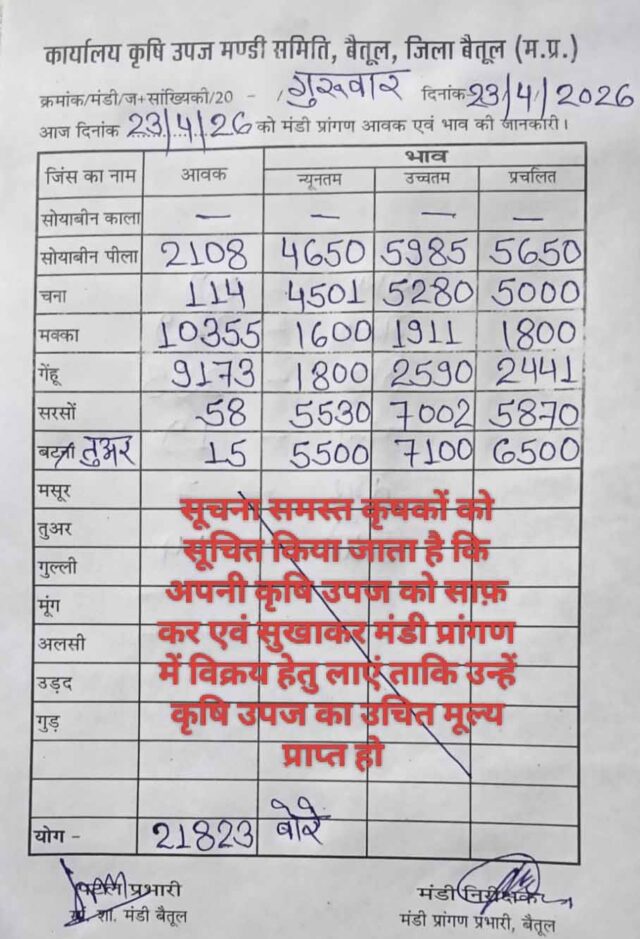 कार्यालय कृषि उपज मण्डी समिति, बैतूल, जिला बैतूल (म.प्र.)
क्रमांक/मंडी/ज+सांख्यिकी/20 - / गुरूवार दिनांक 23/4/2026
आज दिनांक 23/4/26 को मंडी प्रांगण आवक एवं भाव की जानकारी।
जिंस का नाम आवक भाव
न्यूनतम उच्चतम प्रचलित
सोयाबीन काला — — — —
सोयाबीन पीला 2108 4650 5985 5650
चना 114 4501 5280 5000
मक्का 10355 1600 1911 1800
गेंहू 9173 1800 2590 2441
सरसों 58 5530 7002 5870
बटना तुअर 15 5500 7100 6500
मसूर
तुअर
गुल्ली
मूंग
अलसी
उड़द
गुड़
सूचना समस्त कृषकों को
सूचित किया जाता है कि
अपनी कृषि उपज को साफ़
कर एवं सुखाकर मंडी प्रांगण
में विक्रय हेतु लाएं ताकि उन्हें
कृषि उपज का उचित मूल्य
प्राप्त हो
योग - 21823 बोरे
प्रभारी
शा. मंडी बैतूल
मंडी निरीक्षक
मंडी प्रांगण प्रभारी, बैतूल